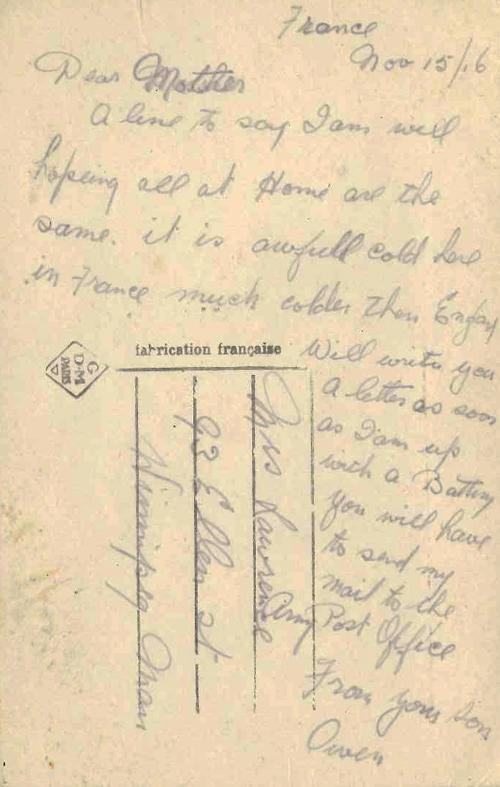 France
Nov 15/16
Dear Mother
A line to say I am well
hopeing all at Home are the
same. it is awfull cold here
in France much colder then England
Will write you
a letter as soon
as I am up
with a Battery
you will have
to send my
mail to the
Army Post Office
From your Son
Owen
fabrication française
G
D.M
PARIS
Mrs Lawrence
93 Ellen st
Winnipeg Man